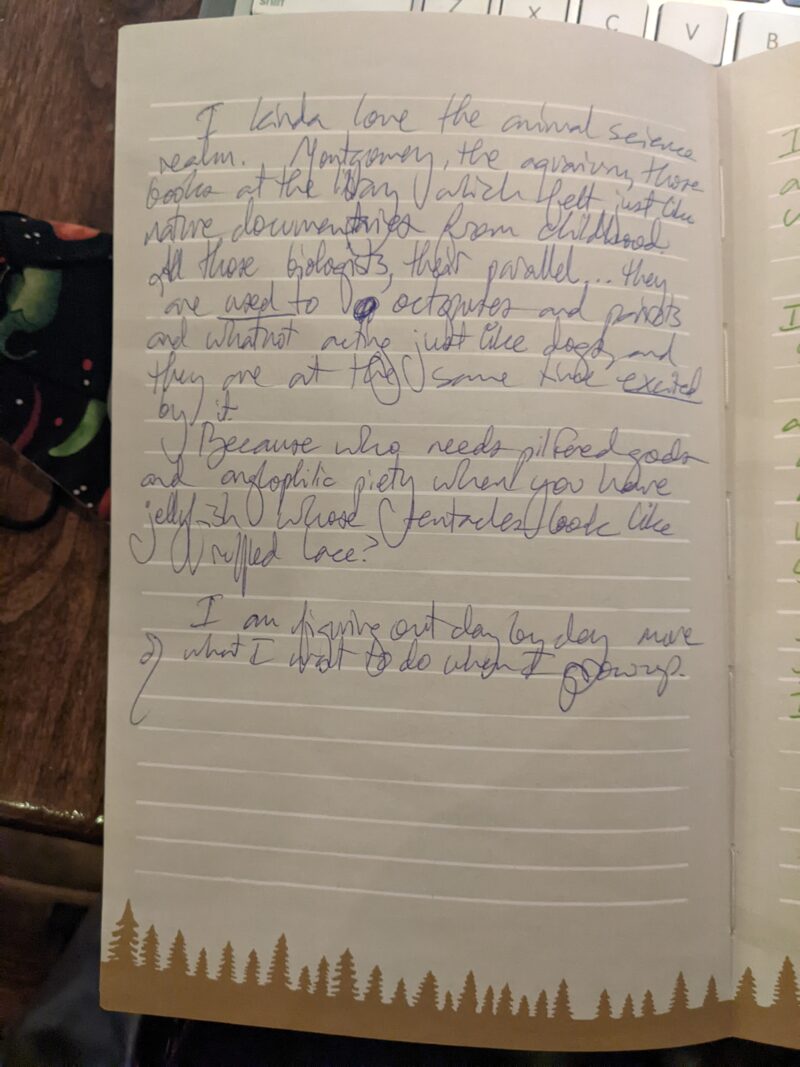 shift
Z X C V B
I kinda love the animal science
realm. Montgomery, the aquarium, those
books at the library which felt just like
native documentaries from childhood.
All those biologists, their parallel... they
are used to octopuses and parrots
and whatnot acting just like dogs, and
they are at the same time excited
by it.
Because who needs pilfered gods
and anglophilic piety when you have
jellyfish whose tentacles look like
ruffled lace?
I am figuring out day by day more
of what I want to do when I grow up.